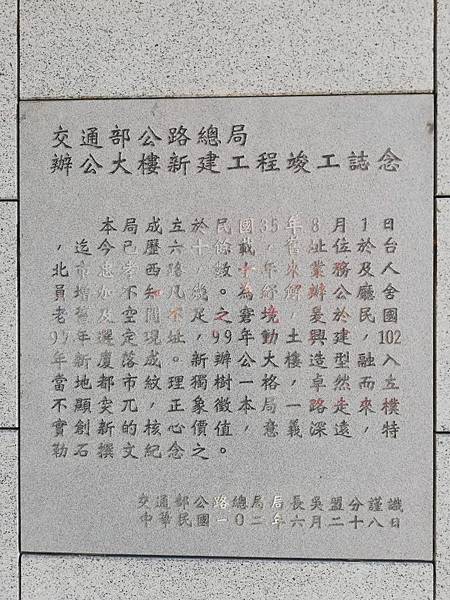 交通部公路總局
辦公大樓新建工程竣工誌念
本局成立於民國35年8月1日
，迄今已歷六十餘載，舊址位於台
北市忠孝西路，數十年來業務及人
員增加不知凡幾。為紓解辦公廳舍
老舊及空間不足之窘境，爰於民國
95年選定現址，99年動土興建，102
年新廈落成。新辦公大樓造型融入
當地都市紋理，獨樹一格，卓然而立
不顯突兀，正象徵本局一路走來，樸
實創新的核心價值。意義深遠，特
勒石撰文紀念之。
交通部公路總局 局長吳盟分謹識
中華民國一0二年六月二十八日